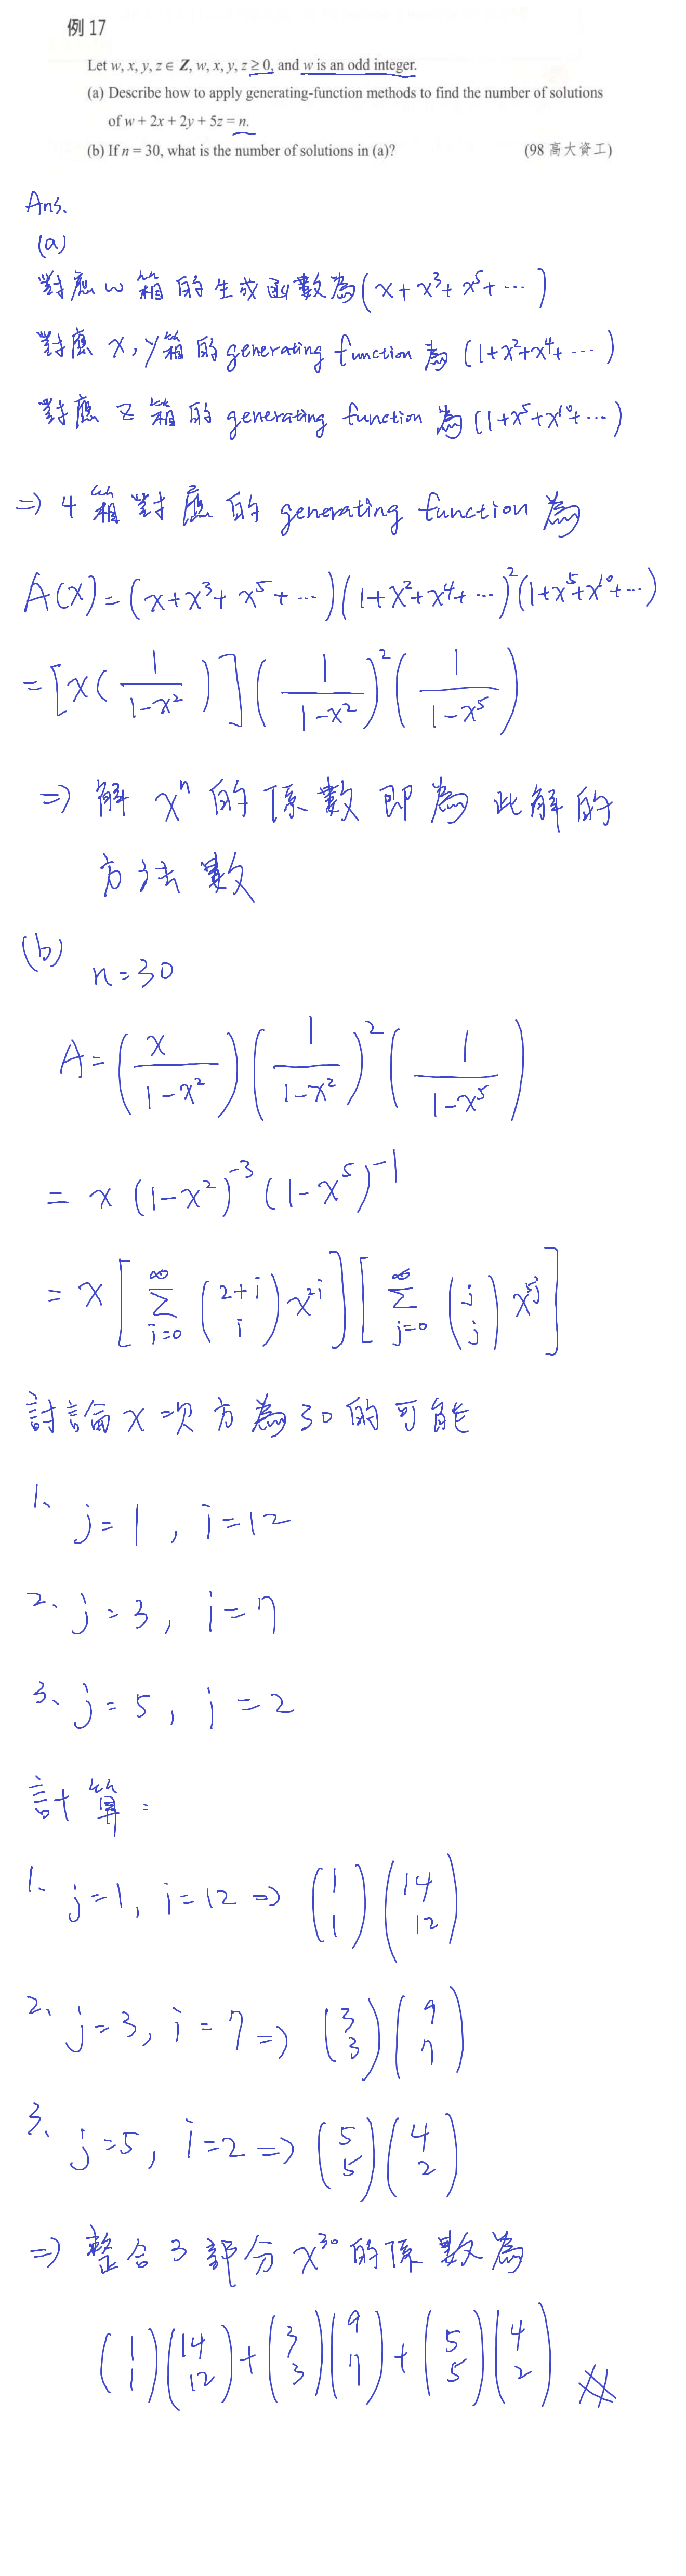 例 17
Let w, x, y, z ∈ Z, w, x, y, z ≥ 0, and w is an odd integer.
(a) Describe how to apply generating-function methods to find the number of solutions
of w + 2x + 2y + 5z = n.
(b) If n = 30, what is the number of solutions in (a)? (98 高大資工)
Ans.
(a)
對應 w 箱 的 生成函數為 (x + x³ + x⁵ + ⋯)
對應 x, y 箱 的 generating function 為 (1 + x² + x⁴ + ⋯)
對應 z 箱 的 generating function 為 (1 + x⁵ + x¹⁰ + ⋯)
⇒ 4 箱 對應 的 generating function 為
A(x) = (x + x³ + x⁵ + ⋯)(1 + x² + x⁴ + ⋯)²(1 + x⁵ + x¹⁰ + ⋯)
= [x(1/(1-x²))](1/(1-x²))²(1/(1-x⁵))
⇒ 解 xⁿ 的 係數 即為 此解的
方法數
(b)
n = 30
A = (x/(1-x²))(1/(1-x²))²(1/(1-x⁵))
= x (1-x²)⁻³ (1-x⁵)⁻¹
= x [∑_{i=0}^{∞} (2+i choose i) x^{2i}][∑_{j=0}^{∞} (j choose j) x^{5j}]
討論 x 次方為 30 的可能
1、 j = 1, i = 12
2、 j = 3, i = 7
3、 j = 5, i = 2
計算:
1、 j = 1, i = 12 ⇒ (1 choose 1)(14 choose 12)
2、 j = 3, i = 7 ⇒ (3 choose 3)(9 choose 7)
3、 j = 5, i = 2 ⇒ (5 choose 5)(4 choose 2)
⇒ 整合 3 部分 x³⁰ 的係數為
(1 choose 1)(14 choose 12) + (3 choose 3)(9 choose 7) + (5 choose 5)(4 choose 2)